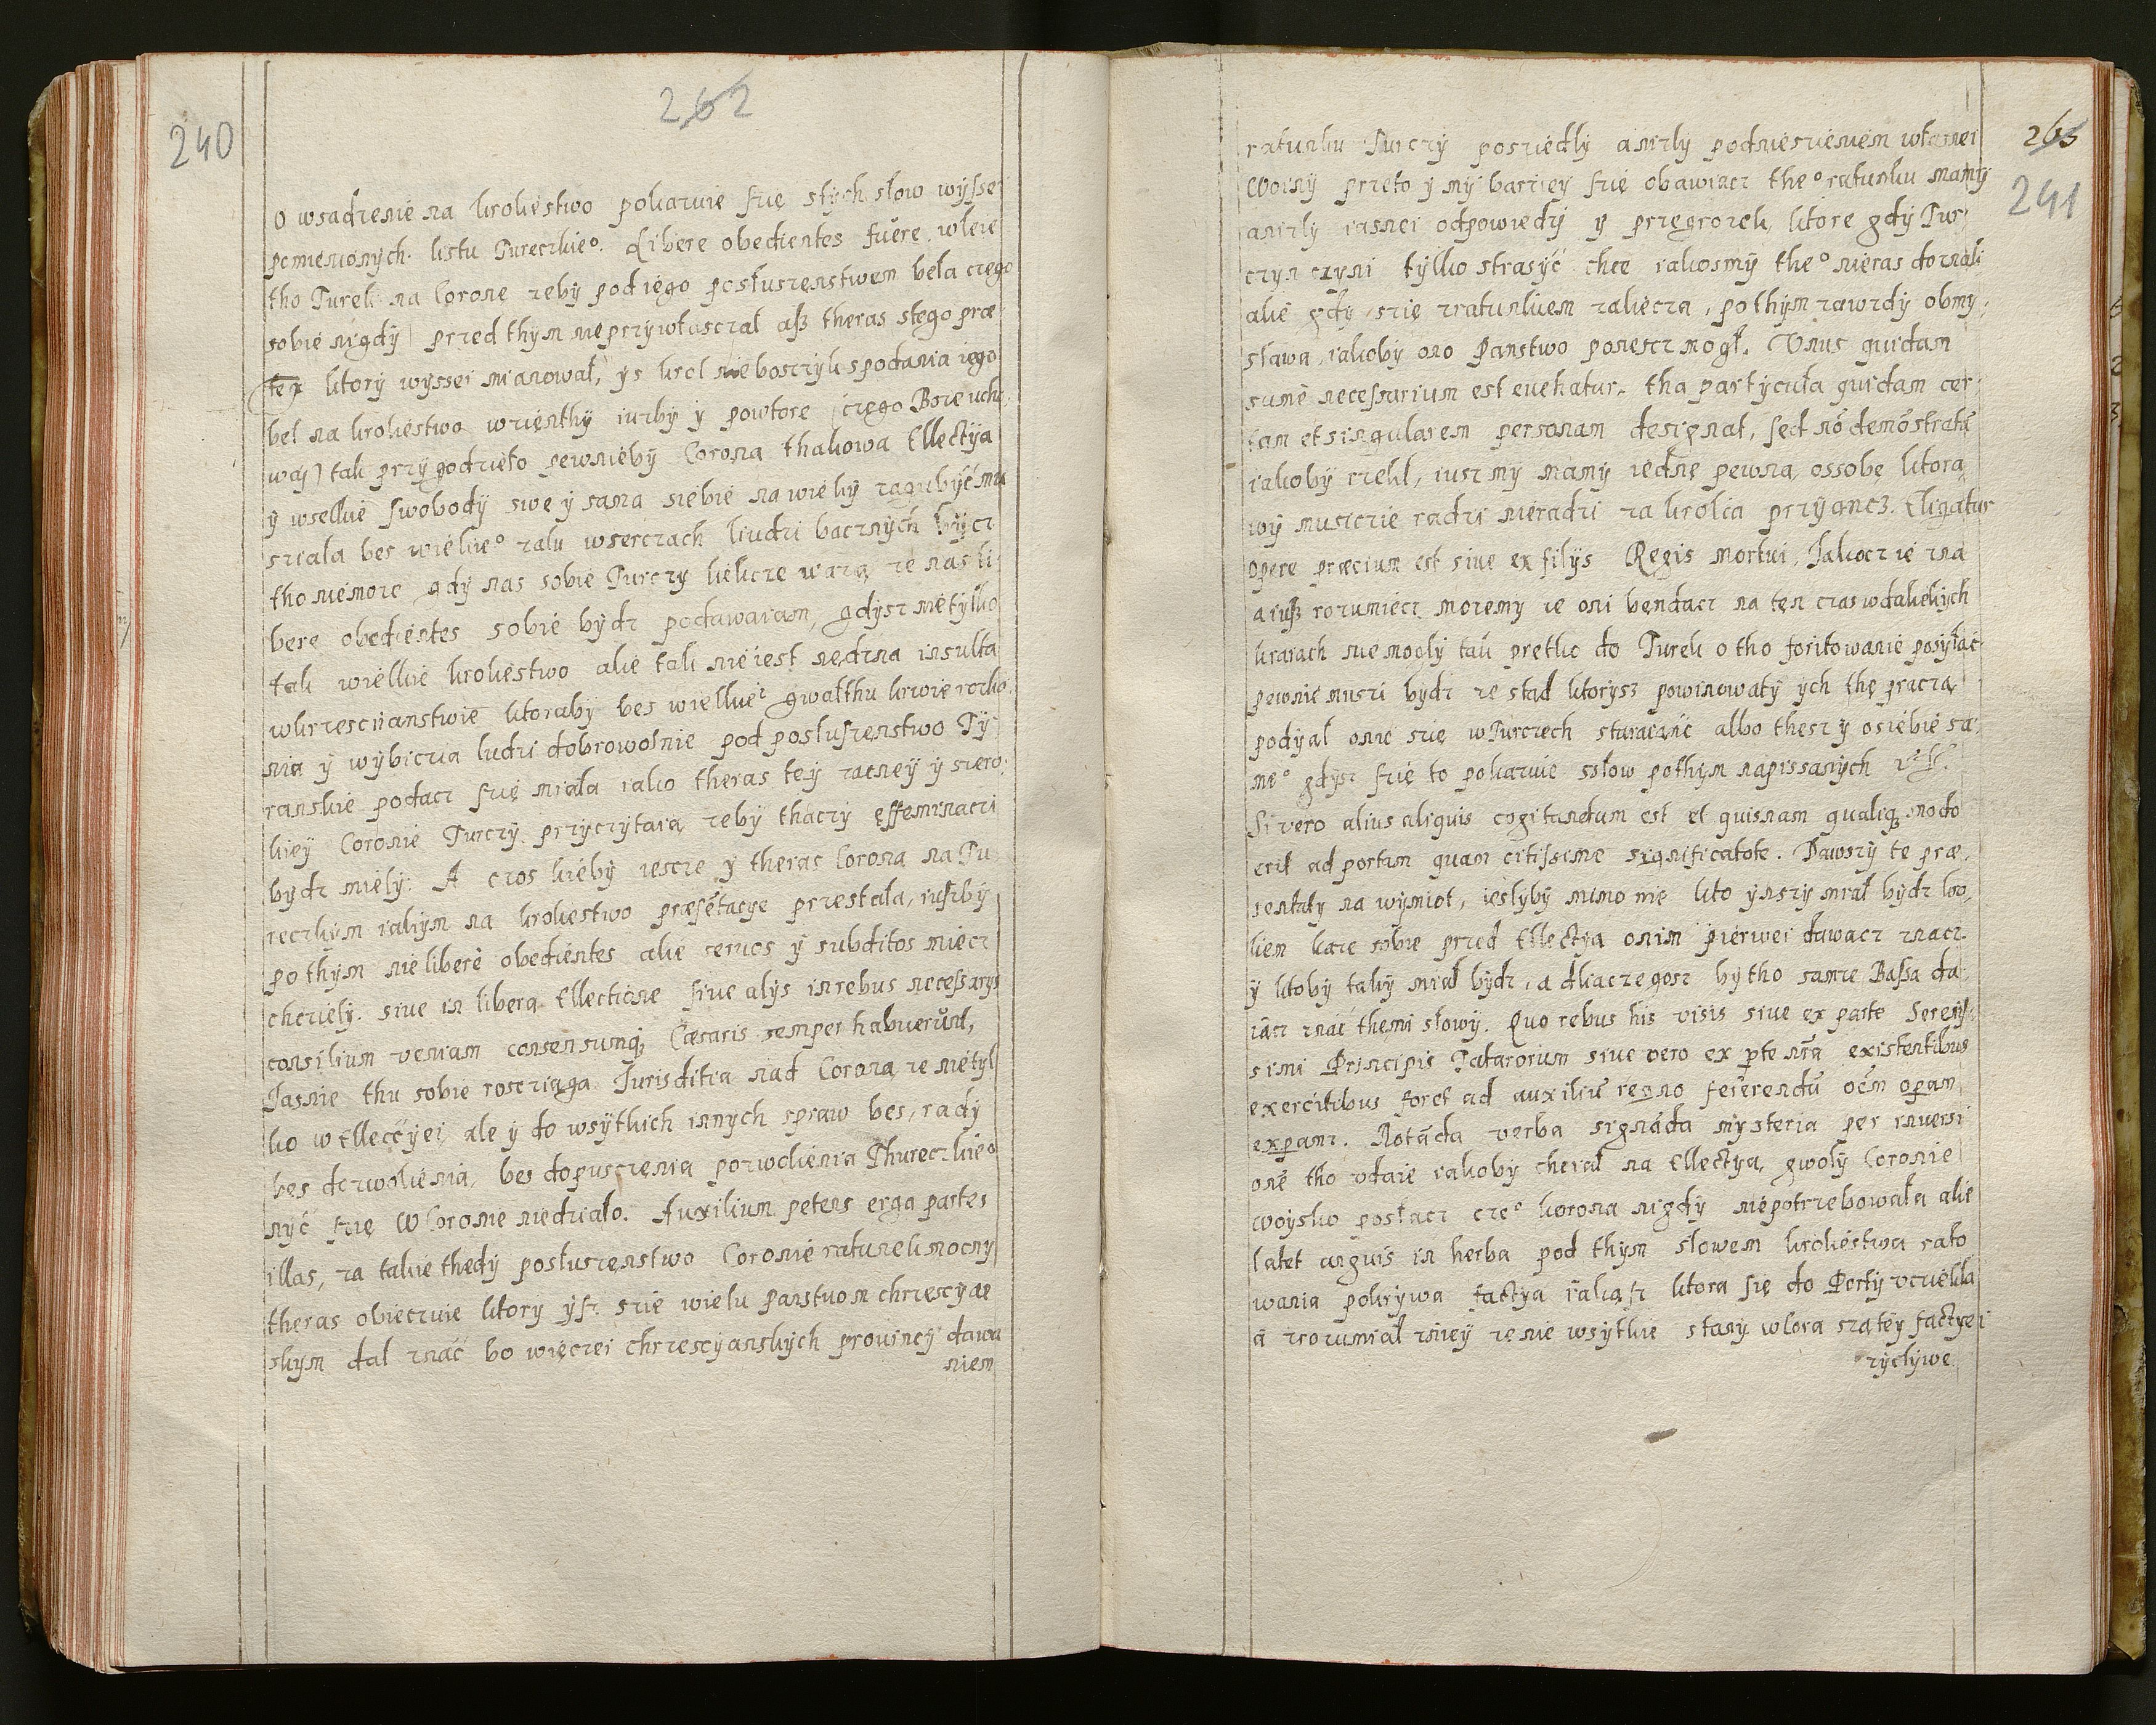 240
262
o wsadzenie na kroliestwo pokazuie się stych słow wyssei
pomienionych listu Tureczkie°. Libere obedientes fuere. wleie
tho Turek na Corone zeby pod iego posłuszenstwem beła czego
sobie nigdy przed thym nieprzywłusczał asz theras stego præ
tex ktory wyssei mianował, ys krol nieboszczyk spodania iego
beł na krolestwo wzienthy iuzby y powtore (czego Boze ucho
way) tak przygodzieło pewnieby Corona thakowa Ellectya
y wselkie swobody swe y sama siebie na wieky zagubyć mu
sziala bes wielkie° zalu wserczach liudzi bacznych bycz
tho niemoze gdy nas sobie Turczy liekcze waza ze nas li
bere obedientes sobie bydz podawaiam, gdysz nietylko
tak wielkie krolestwo alie tak nieiest nędzna insulta
wkrzescianstwie ktoraby bes wielkie° gwałthu krwie rozlia
nia y wybicia ludzi dobrowolnie pod posłuszenstwo Ty
ranskie podacz się miała iako theras tey zacney y szero
kiey Coronie Turczy przyczytaia zeby thaczy effeminaczi
bydz mieły. A czos kieby iescze y theras Corona na Tu
reczkim iakym na krolestwo præsētacye przestała, iuszby
pothym nie liberè obedientes alie seruos y subditos miecz
chcieły. siue in libera Ellectione siue alys in rebus necessarys
consilium veniam consensumq; Cæsaris semper habuerūnt,
Jasnie thu sobie rosciaga Jurisditia nad Corona ze nietyl
ko w Elleccyei ale y do wsytkich innych spraw bes, rady
bes dozwolienia, bes dopusczenia pozwolienia Thureczkie°
nyć się w Coronie niedziało. Auxilium petens erga partes
illas, za takie thedy posłuszenstwo Coronie ratunek mocny
theras obieczuie ktory ysz szie wielu panstuom chrzescyan
skym dał znać bo więczei chrzescyanskych prouincy dawa
niem
263
241
ratunku Turczy posziedly anizly podniesieniem własnei
Woiny przeto y my barziey się obawiacz the° ratunku mamy
anizly iasnei odpowiedzy y przegrozek, ktore gdy Tur
czyn czyni tylko strasyć chce iakosmy the° nieras doznali
alie gdy szię zratunkiem zaliecza, pothym zawzdy obmy
sława iakoby ono Panstwo poniescz mogł. Vnus quidam
sumè necessarium est euehatur. tha partycuła quidam cer
tam et singularem personam designat, sed nō demōstratū
iakoby rzekł, iusz my mamy iedne pewna ossobe ktora
wy musicie radzi nieradzi za krolia przyąncz. Eligatur
opere præcium est siue ex filys Regis mortui, Jakocz ie zna
a iusz rozumiecz mozemy ze oni bendacz na ten czas wdalekich
krarach nie mogly tak pretko do Turek o tho foritowanie posyłać
pewnie musi bydz ze stad ktorysz powinowaty ych thę pracza
podyal onie szię wTurczech staraianc albo thesz y osiebie sa
me° gdysz się to pokazuie słow pothym napissanych
Si vero alius aliquis cogitandum est et quisnam qualiq; modo
erit ad portam quam citissime significatote. Dawszy te præ
sentaty na wymiot, iesłyby mimo nie kto ynszy miał bydz kro
liem kaze sobie przed Ellectya onim pierwei dawacz znacz
y ktoby taky miał bydz, a dliaczegosz by tho samze Bassa da
iacz znać themi słowy. Quo rebus his visis siue ex parte Serenis
simi Principis Tatarorium siue vero ex pte nr̄a existentibus
exercitibus foret ad auxiliū regno ferendū oēm opam
expam. Notāda verba signāda mysteria per inuersi
onē tho vdaie iakoby chciał na Ellectya gwoly Coronie
woysko posłacz cze° korona nigdy niepotrzebowała alie
latet anguis in herba pod thym słowem krolestwa rato
wania pokrywa factya iakasz ktora się do Porty vciekła
a zrozumiał zniey ze nie wsytkie stany wkora szątey factyei
zyczlywe